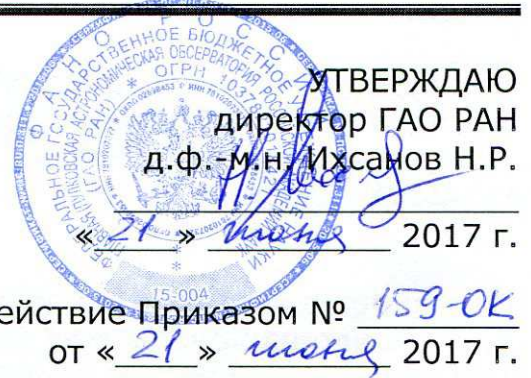 УТВЕРЖДАЮ
директор ГАО РАН
д.ф.-м.н. Ихсанов Н.Р.
« 21 » июня 2017 г.
15-004
ействие Приказом № 159-ОК
от « 21 » июня 2017 г.